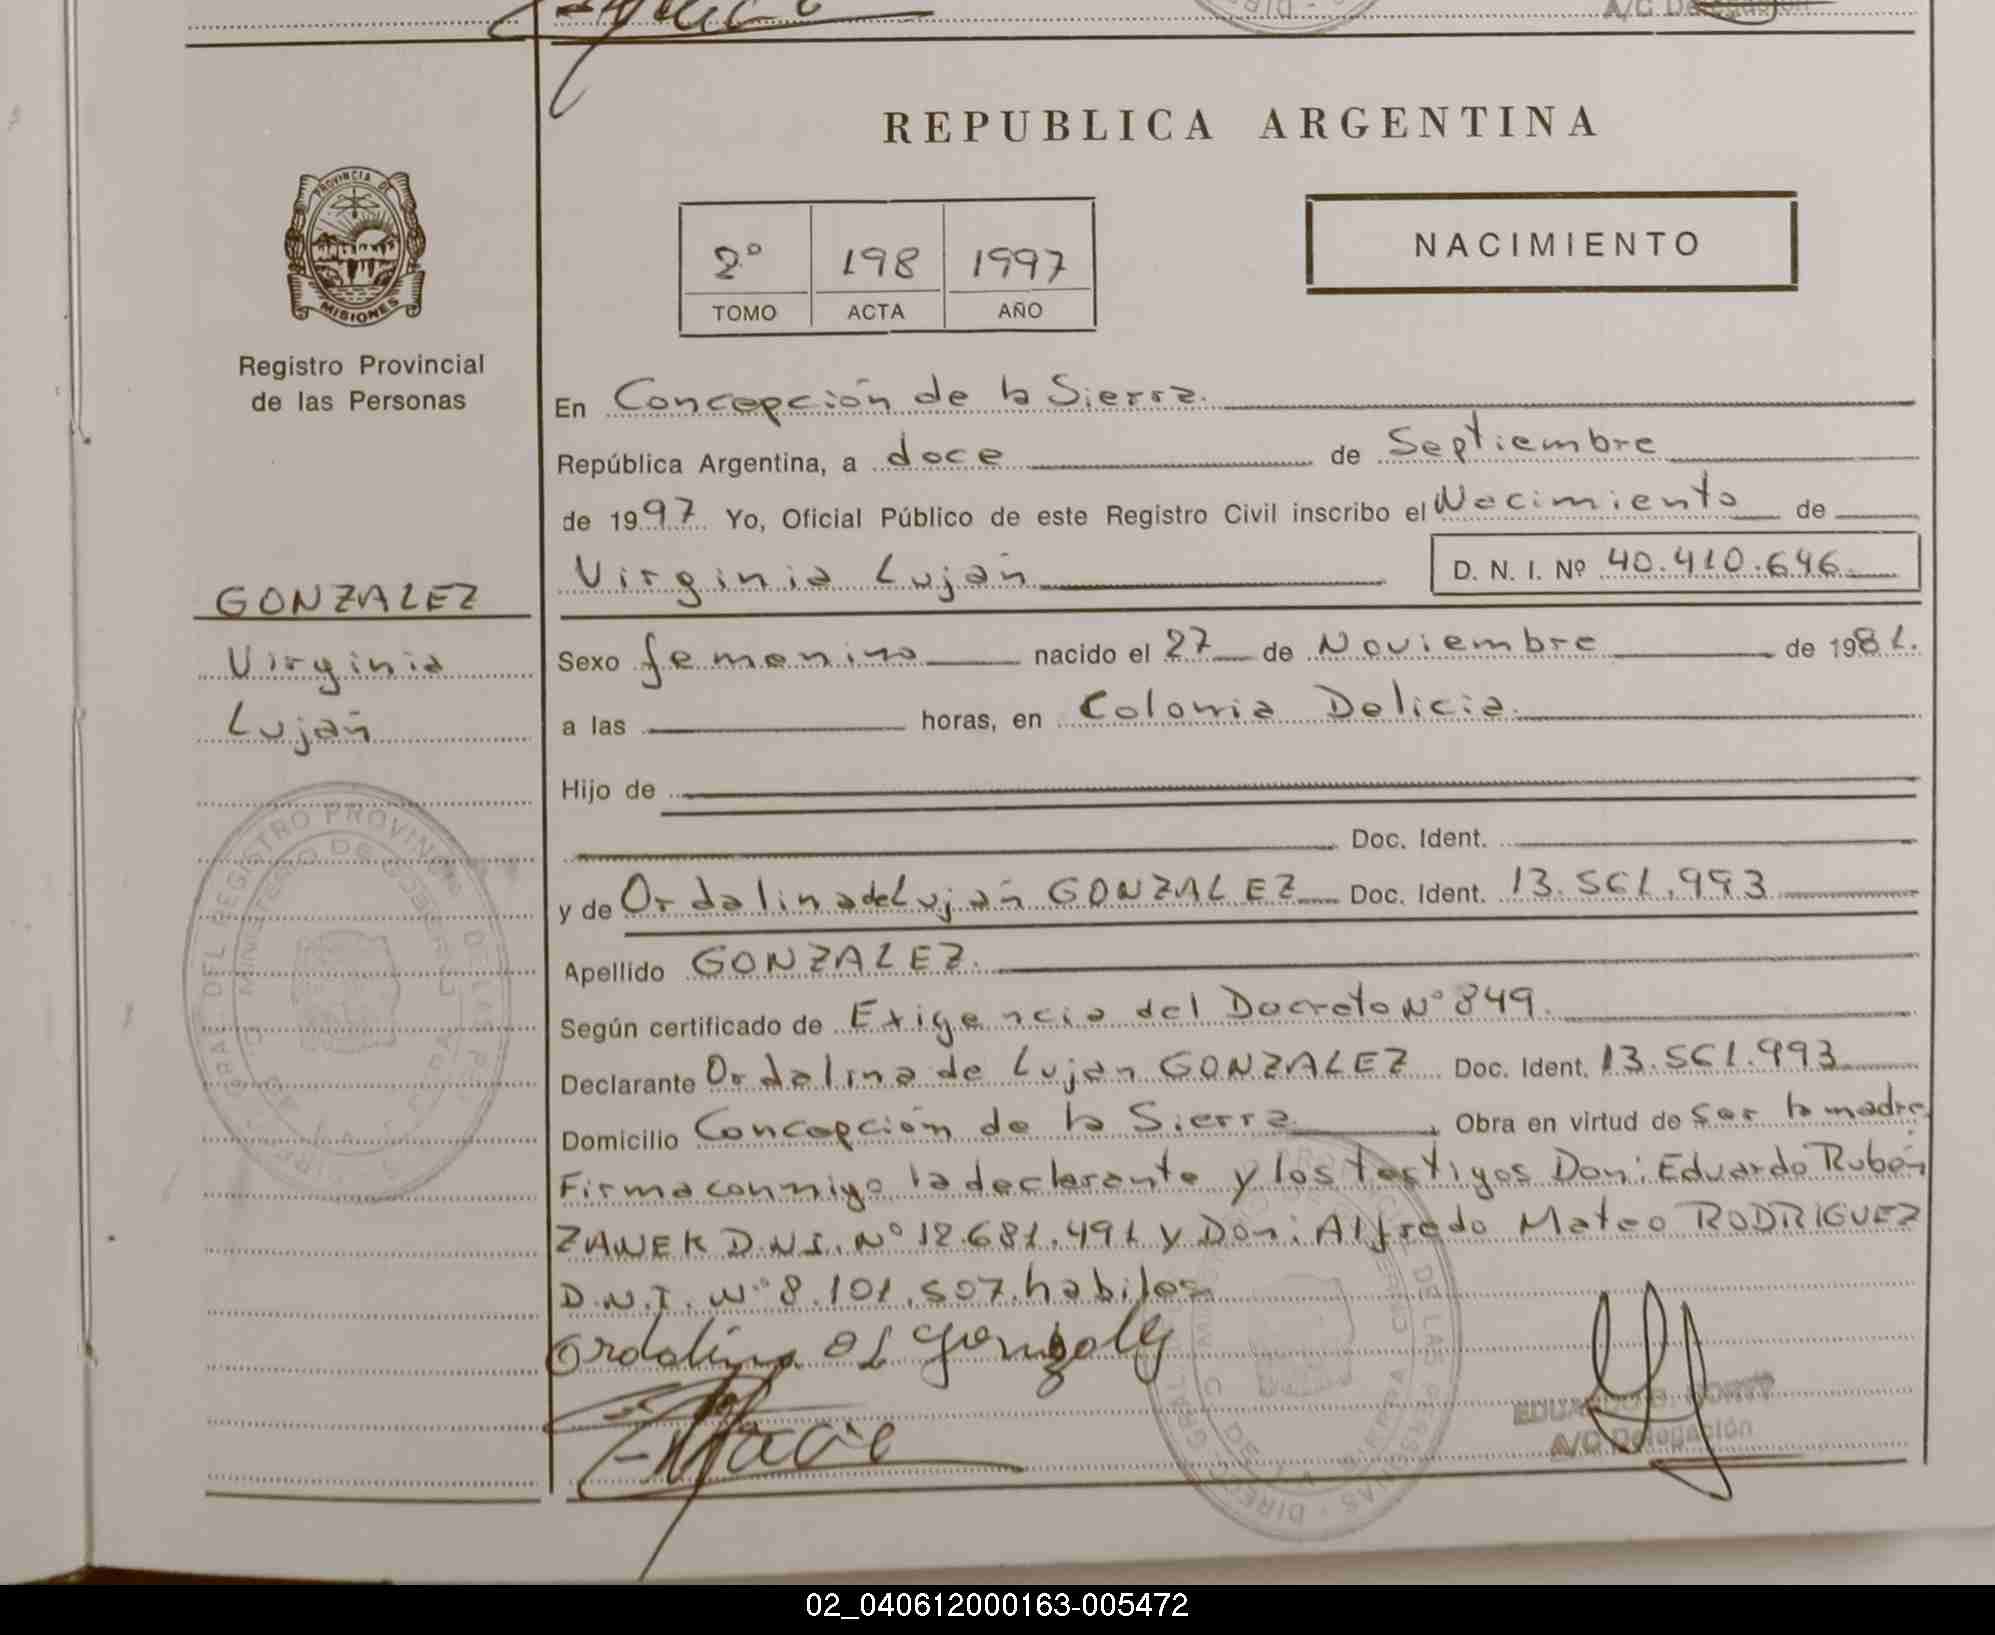 A/C Delegación
REPUBLICA ARGENTINA
PROVINCIA DE
MISIONES
Registro Provincial
de las Personas
2º 198 1997
TOMO ACTA AÑO
NACIMIENTO
En Concepción de la Sierra.
República Argentina, a doce de Septiembre
de 1997 Yo, Oficial Público de este Registro Civil inscribo el Nacimiento de
Virginia Luján D. N. I. Nº 40.410.646
GONZALEZ
Virginia
Luján
Sexo femenino nacido el 27 de Noviembre de 1981.
a las horas, en Colonia Delicia.
Hijo de
Doc. Ident.
y de Ordalina de Luján GONZALEZ Doc. Ident. 13.561.993
Apellido GONZALEZ.
Según certificado de Exigencia del Decreto Nº 849.
Declarante Ordalina de Luján GONZALEZ Doc. Ident. 13.561.993
Domicilio Concepción de la Sierra, Obra en virtud de ser la madre.
Firma conmigo la declarante y los testigos Don: Eduardo Rubén
ZANEK D.N.I. Nº 12.681.491 y Don: Alfredo Mateo RODRIGUEZ
D.N.I. Nº 8.101.507. habiles
Ordalina de L Gonzalez
A/C Delegación
02_040612000163-005472